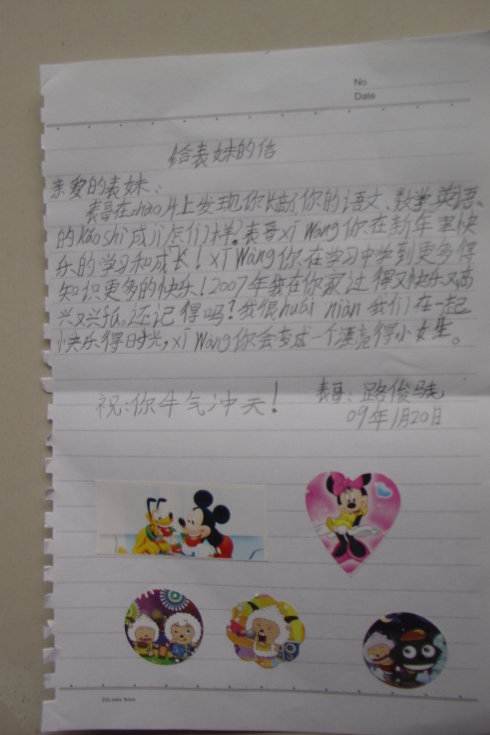 No
Date
给表妹的信
亲爱的表妹、
表哥在zhao片上发现你 你的语文、数学英语、
的kǎoshì成jì怎们样?表哥xī Wàng你在新年里快
乐的学习和成长!xī Wàng你在学习中学到更多得
知识更多的快乐!2007年我在你家过得又快乐又高
兴又兴奋。还记得吗?我很huái niàn我们在一起
快乐得时光,xī Wàng你会变成一个漂亮得小女生。
祝:你牛气冲天!
表哥:路俊
09年1月20日